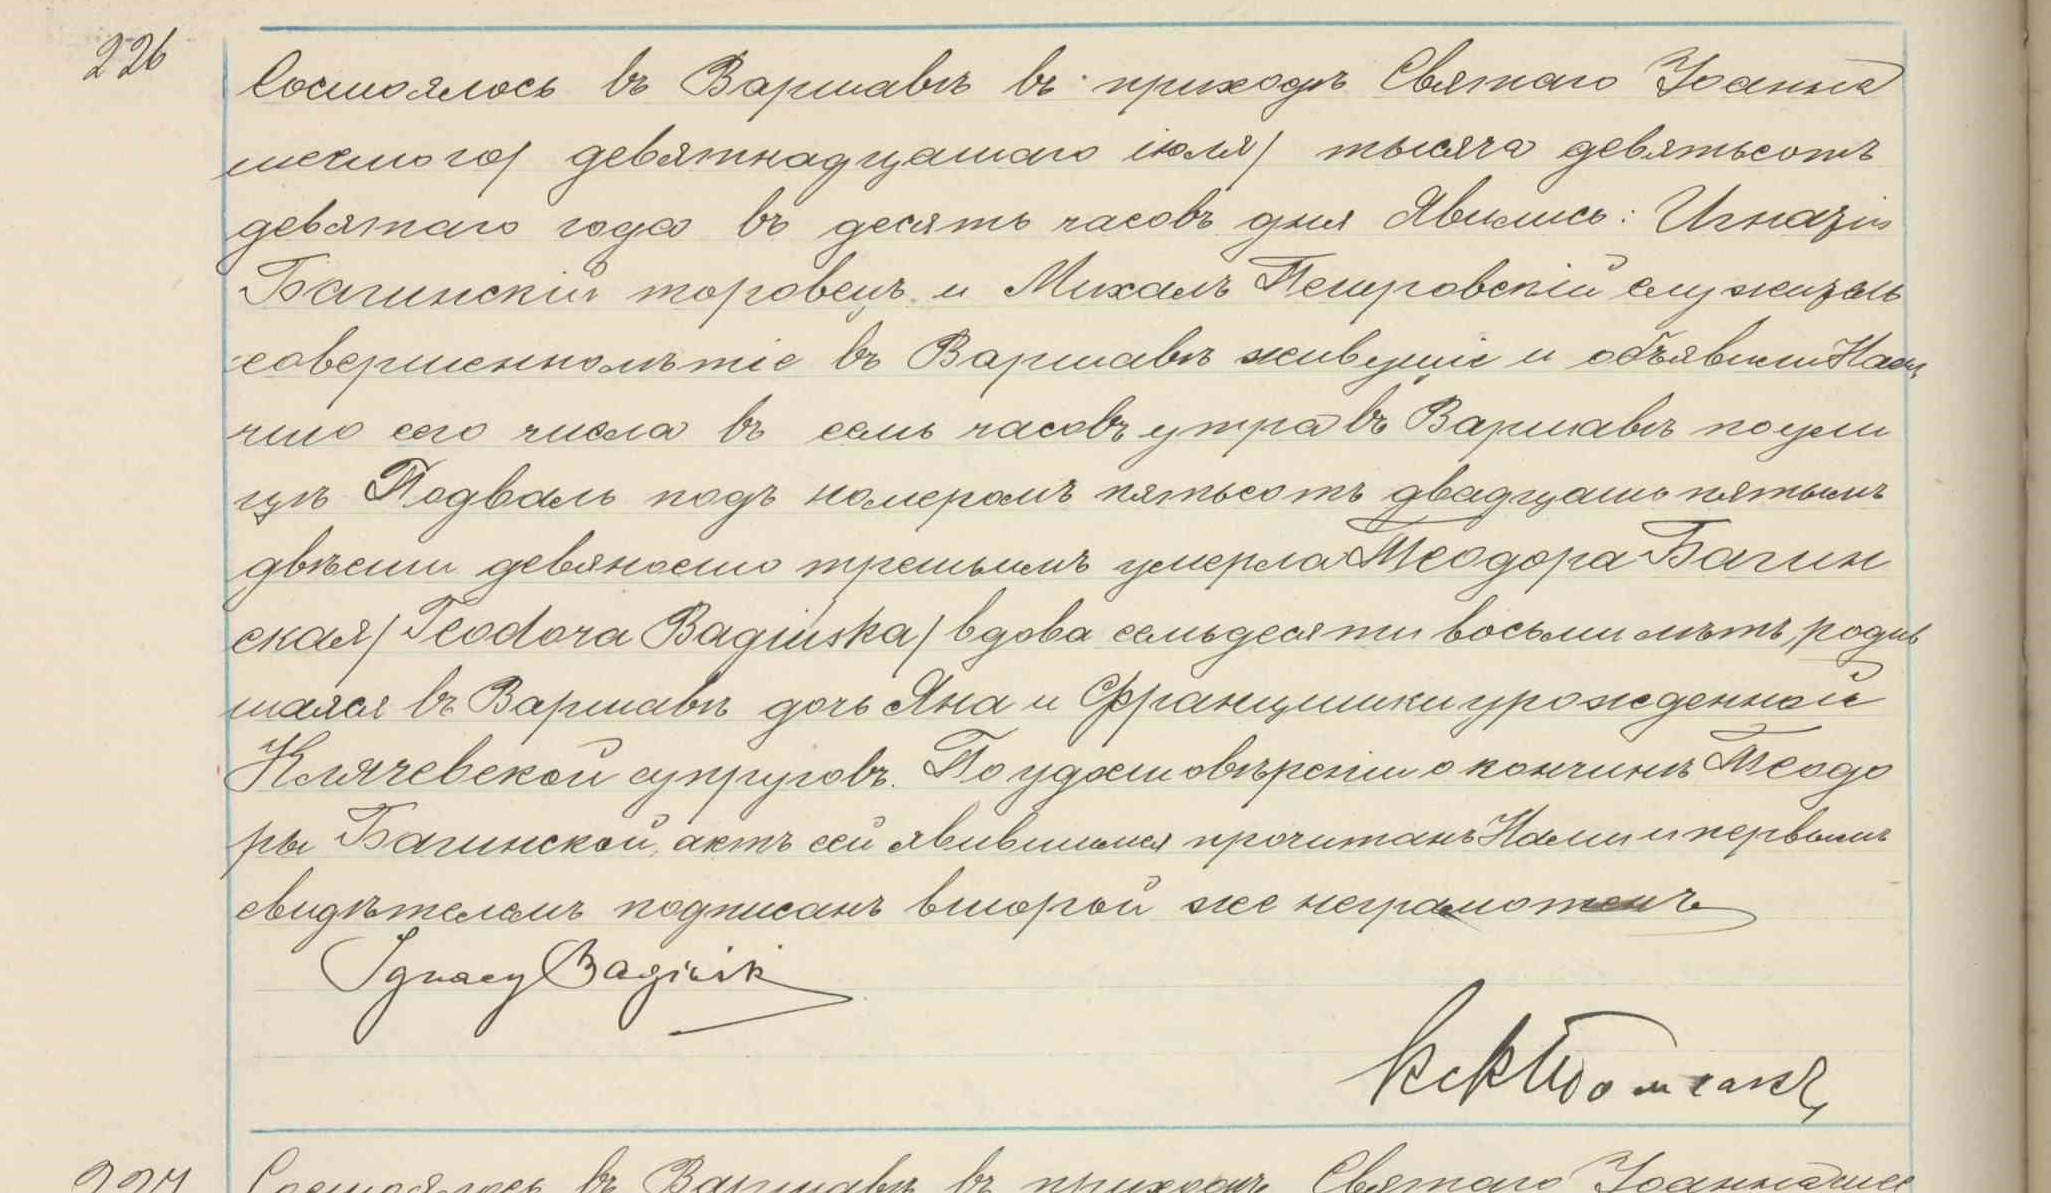 226
Состоялось въ Варшавѣ въ приходѣ Святаго Іоанна
шестого/ девятнадцатаго іюля/ тысяча девятьсотъ
девятаго года въ десять часовъ дня Явились: Игнацій
Багинскій торовецъ и Михалъ Петровскій служитель
совершеннолѣтіе въ Варшавѣ живущіе и объявили Намъ
что сего числа въ семь часовъ утра въ Варшавѣ по ули
цѣ Подваль подъ номеромъ пятьсотъ двадцать пятымъ
двѣсти девяносто третьимъ умерла Теодора Багин
ская/ Teodora Bagińska/ вдова семьдесяти восьми лѣтъ, родив
шаяся въ Варшавѣ дочь Яна и Францишки урожденной
Клячевской супруговъ. По удостовѣреніи о кончинѣ Теодо
ры Багинской, актъ сей явившимся прочитанъ Нами и первымъ
свидѣтелемъ подписанъ второй же неграмотенъ
Ignacy Bagińsk
227
Состоялось въ Варшавѣ въ приходѣ Святаго Іоанна